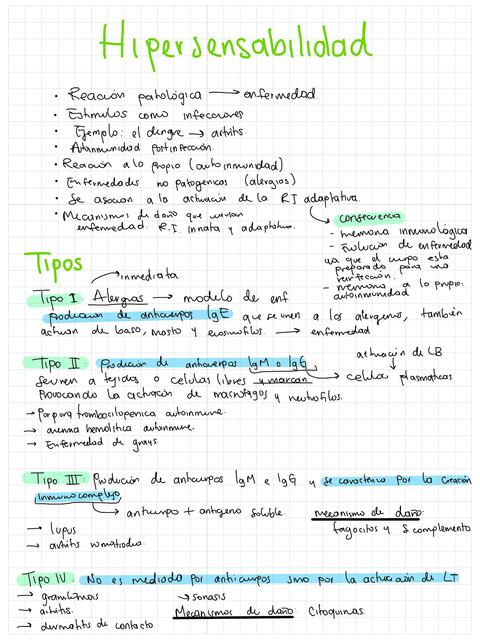 Hipersensabilidad
• Reacción patológica → enfermedad.
• Estímulos como infecciones
• Ejemplo: el dengue → artritis.
• Autoinmunidad postinfección.
• Reacción a lo propio (autoinmunidad)
• Enfermedades no patogenicas (alergias)
• Se asocian a la activación de la R.I adaptativa.
• Mecanismos de daño que causan
enfermedad: R.I. innata y adaptativa.
consecuencia
- memoria inmunológica
- Evolución de enfermedad
ya que el cuerpo esta
preparado para una
reinfección.
- memoria a lo propio:
autoinmunidad
Tipos
→ inmediata.
Tipo I: Alergias → modelo de enf
Producción de anticuerpos IgE que se unen a los alergenos, también
activan de baso, masto y eosinofilos. → enfermedad
Tipo II: Producción de anticuerpos IgM o IgG
activación de LB
Se unen a tejidos o celulas libres y marcan → celulas plasmaticas
Provocando la activación de macrofagos y neutrofilos.
→ Purpura trombocitopenica autoinmune.
→ anemia hemolitica autoinmune.
→ Enfermedad de grays.
Tipo III: Producción de anticuerpos IgM e IgG y se caracteriza por la creación
inmunocomplejo
→ anticuerpo + antígeno soluble.
mecanismo de daño:
fagocitos y S. complemento
→ lupus
→ artritis romatoidea
Tipo IV. No es mediada por anticuerpos sino por la activación de LT
→ granulomas
→ soriasis
→ artritis.
Mecanismos de daño: Citoquinas.
→ dermatitis de contacto